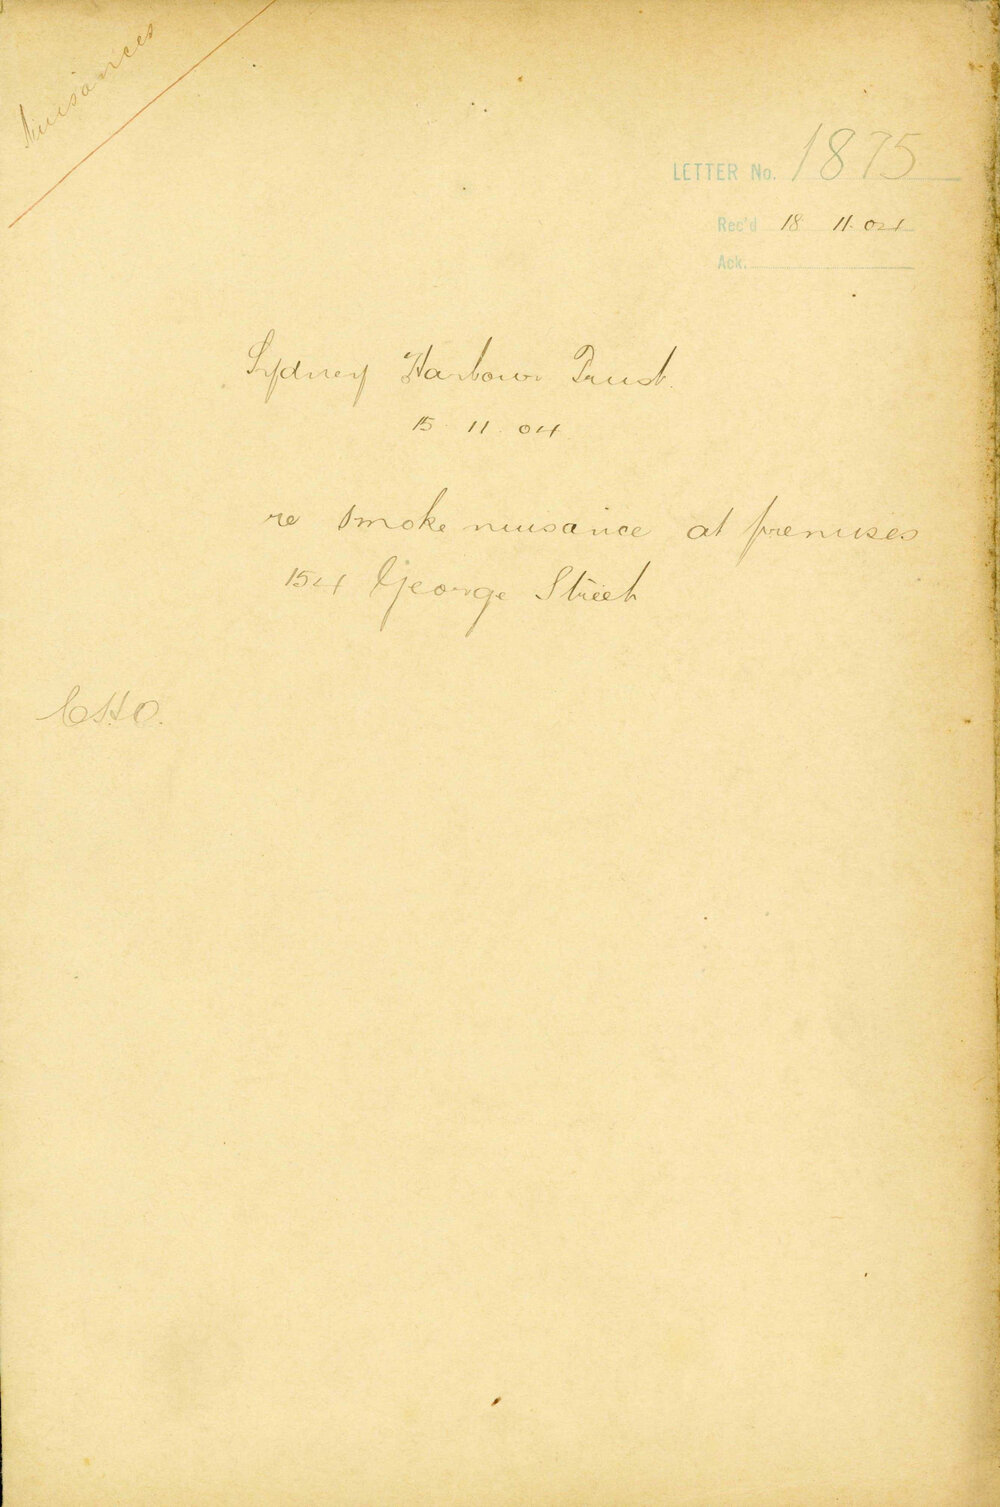 Nuisances
LETTER No. 1875
Rec'd 18 11.04
Ack.
Sydney Harbour Trust.
15 11 04
re smoke nuisance at premises
154 George Street
C.H.O.